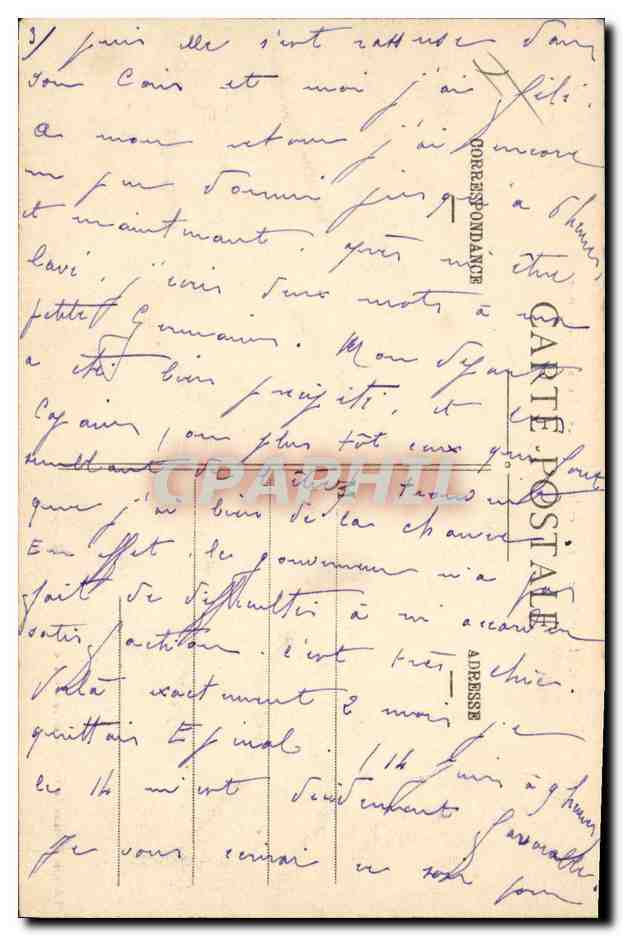 3/ puis elle s'est rassise dans
son coin et moi j'ai filé.
A mon retour j'ai encore
un peu dormi jusqu'à 6 heures,
et maintenant, après m'être
lavé, j'écris deux mots à ma
petite Germaine. Mon départ
a été bien précipité, et les
copains, ou plus tôt ceux qui font
semblant de l'être trouvent
que j'ai bien de la chance.
En effet, le gouverneur n'a pas
fait de difficultés à m'accorder
satisfaction. C'est très chic.
Voilà exactement 2 mois je
quittais Epinal. (14 Juin à 9 heures
le 14 m'est décidément favorable.
Je vous écrirai ce soir pour
CARTE POSTALE
CORRESPONDANCE
ADRESSE
CPAPHIL